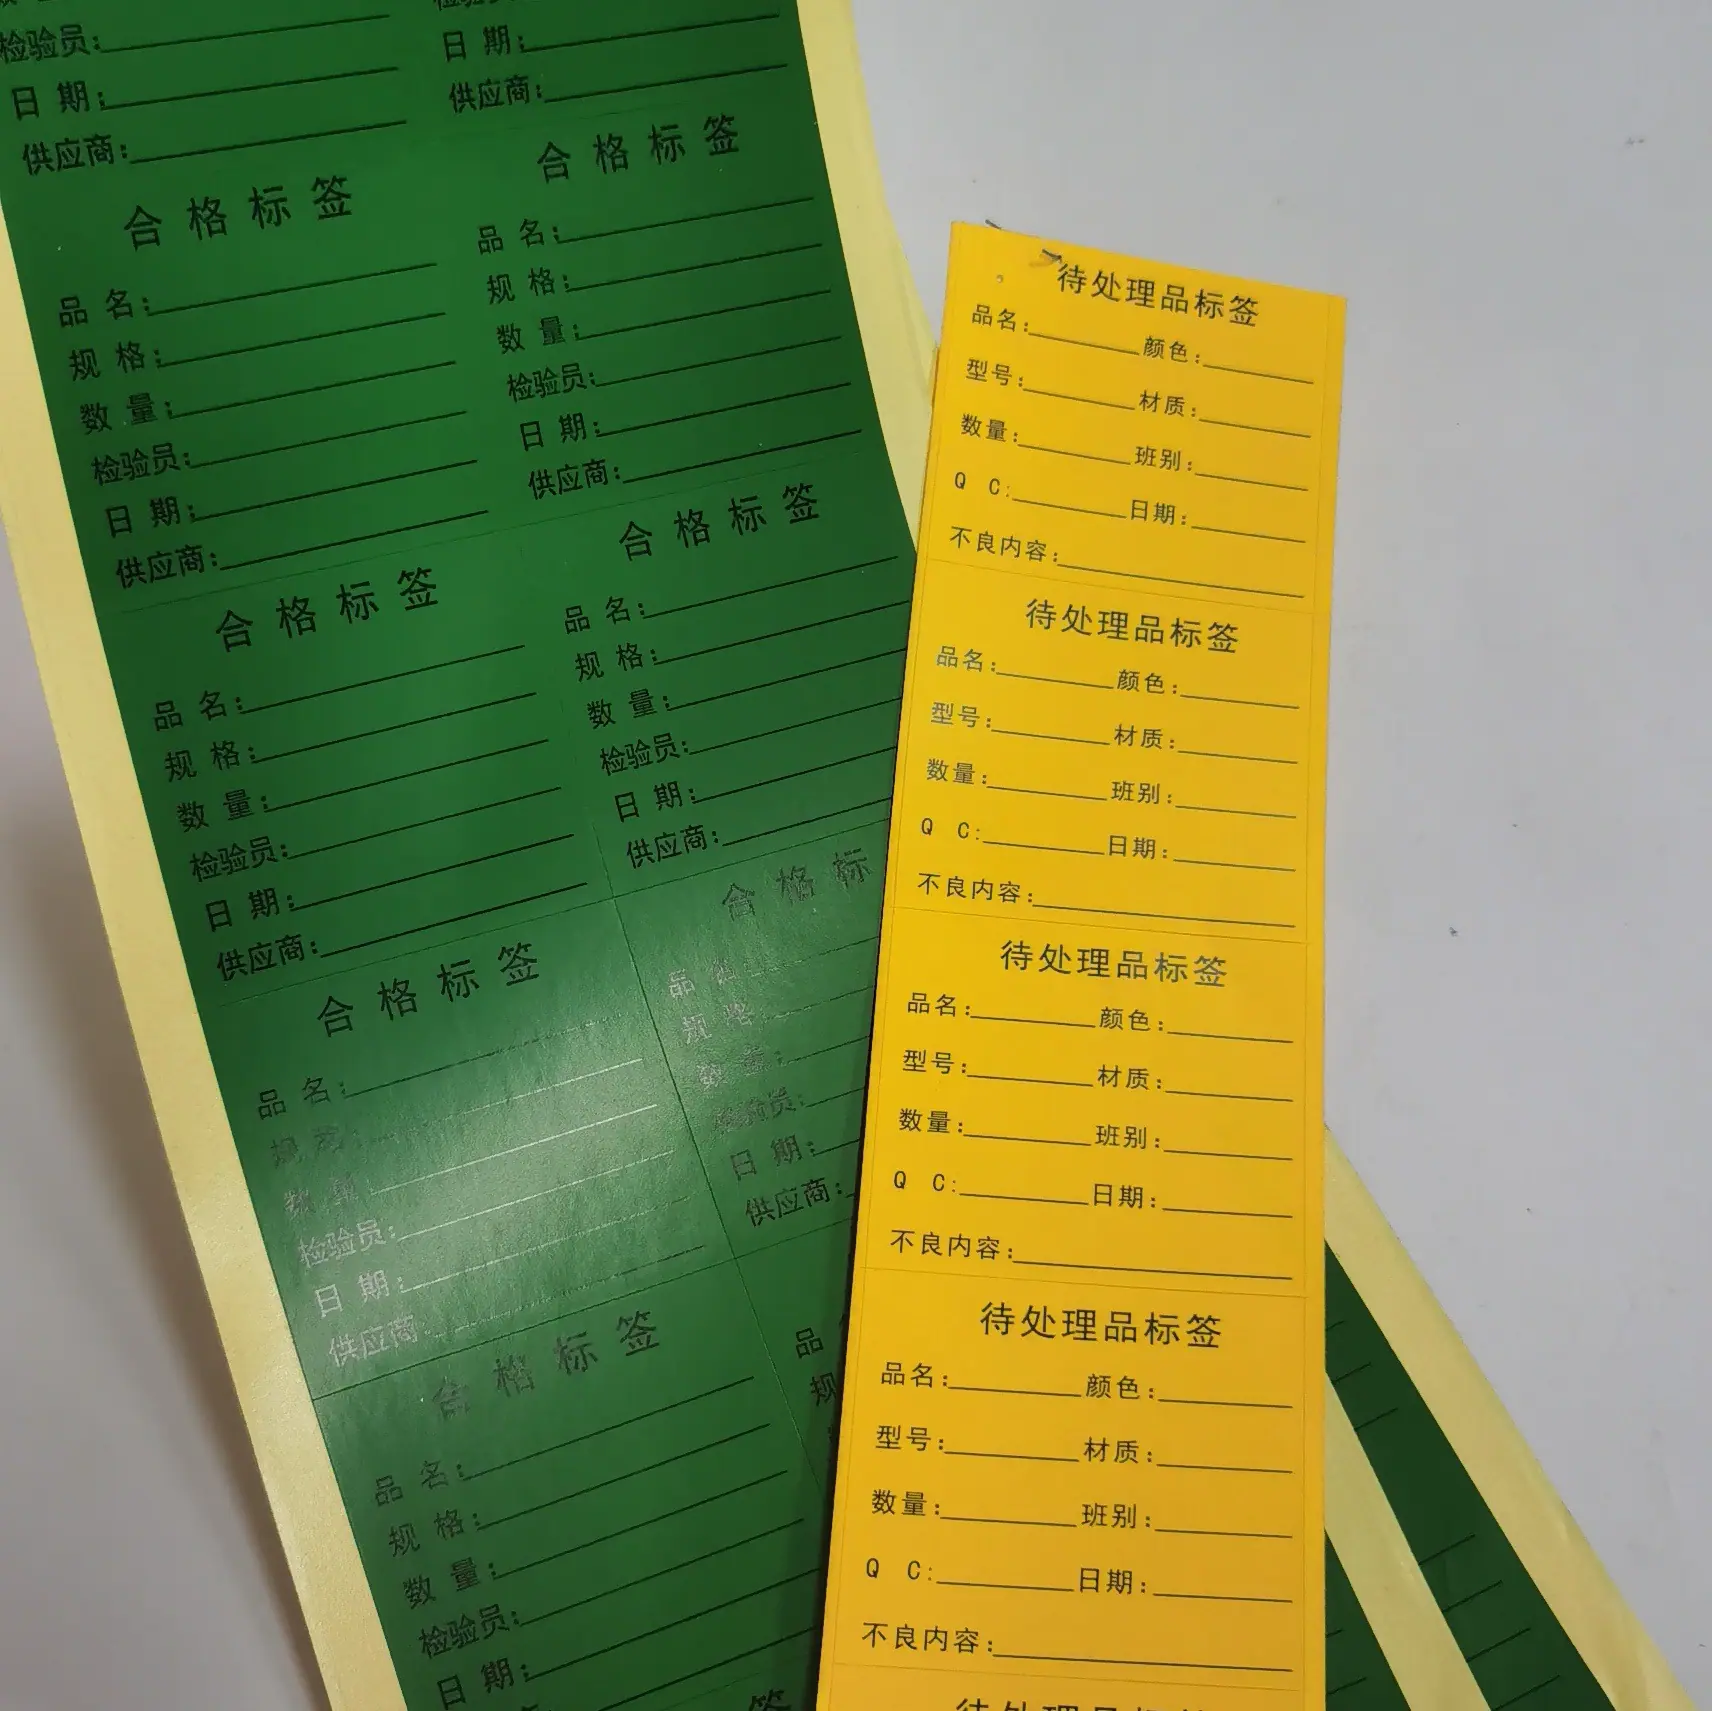 检验员:
日 期:
供应商:
日 期:
供应商:
合格标签
品 名:
规 格:
数 量:
检验员:
日 期:
供应商:
合格标签
品 名:
规 格:
数 量:
检验员:
日 期:
供应商:
合格标签
品 名:
规 格:
数 量:
检验员:
日 期:
供应商:
合格标签
品 名:
规 格:
数 量:
检验员:
日 期:
供应商:
合格标签
品 名:
规 格:
数 量:
检验员:
日 期:
供应商
合格标
品 名:
规 格:
数 量:
检验员:
日 期:
供应商:
合格标签
品 名:
规 格:
数 量:
检验员:
日 期:
品
规
签
待处理品标签
品名: 颜色:
型号: 材质:
数量: 班别:
Q C: 日期:
不良内容:
待处理品标签
品名: 颜色:
型号: 材质:
数量: 班别:
Q C: 日期:
不良内容:
待处理品标签
品名: 颜色:
型号: 材质:
数量: 班别:
Q C: 日期:
不良内容:
待处理品标签
品名: 颜色:
型号: 材质:
数量: 班别:
Q C: 日期:
不良内容: